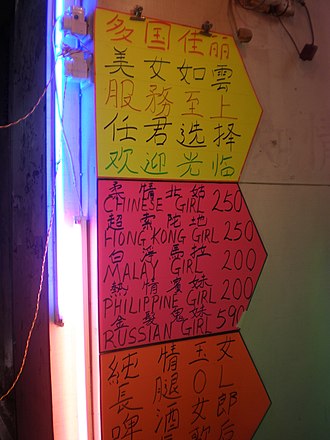 多国佳丽
美女如雲
服務至上
任君选择
欢迎光临
柔情北姑
CHINESE GIRL 250
超索陀地
HONG KONG GIRL 250
白滑馬拉
MALAY GIRL 200
熱情賓妹
PHILIPPINE GIRL 200
金髮鬼妹
RUSSIAN GIRL 590
純情玉女
長腿OL
啤酒女郎